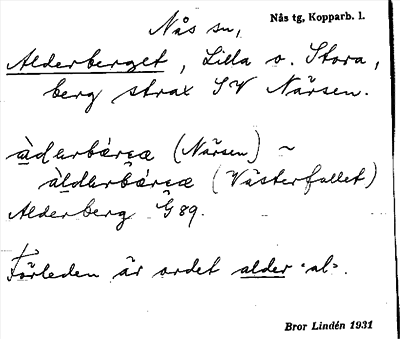 Nås sn,
Nås tg, Kopparb. l.
Alderberget, Lilla o. Stora,
berg strax SV Närsen.
àdɩrbǽrɢæ (Närsen) ~
àldɩrbǽrɢæ (Västerfallet)
Alderberg G 89.
Förleden är ordet alder "al".
Bror Lindén 1931